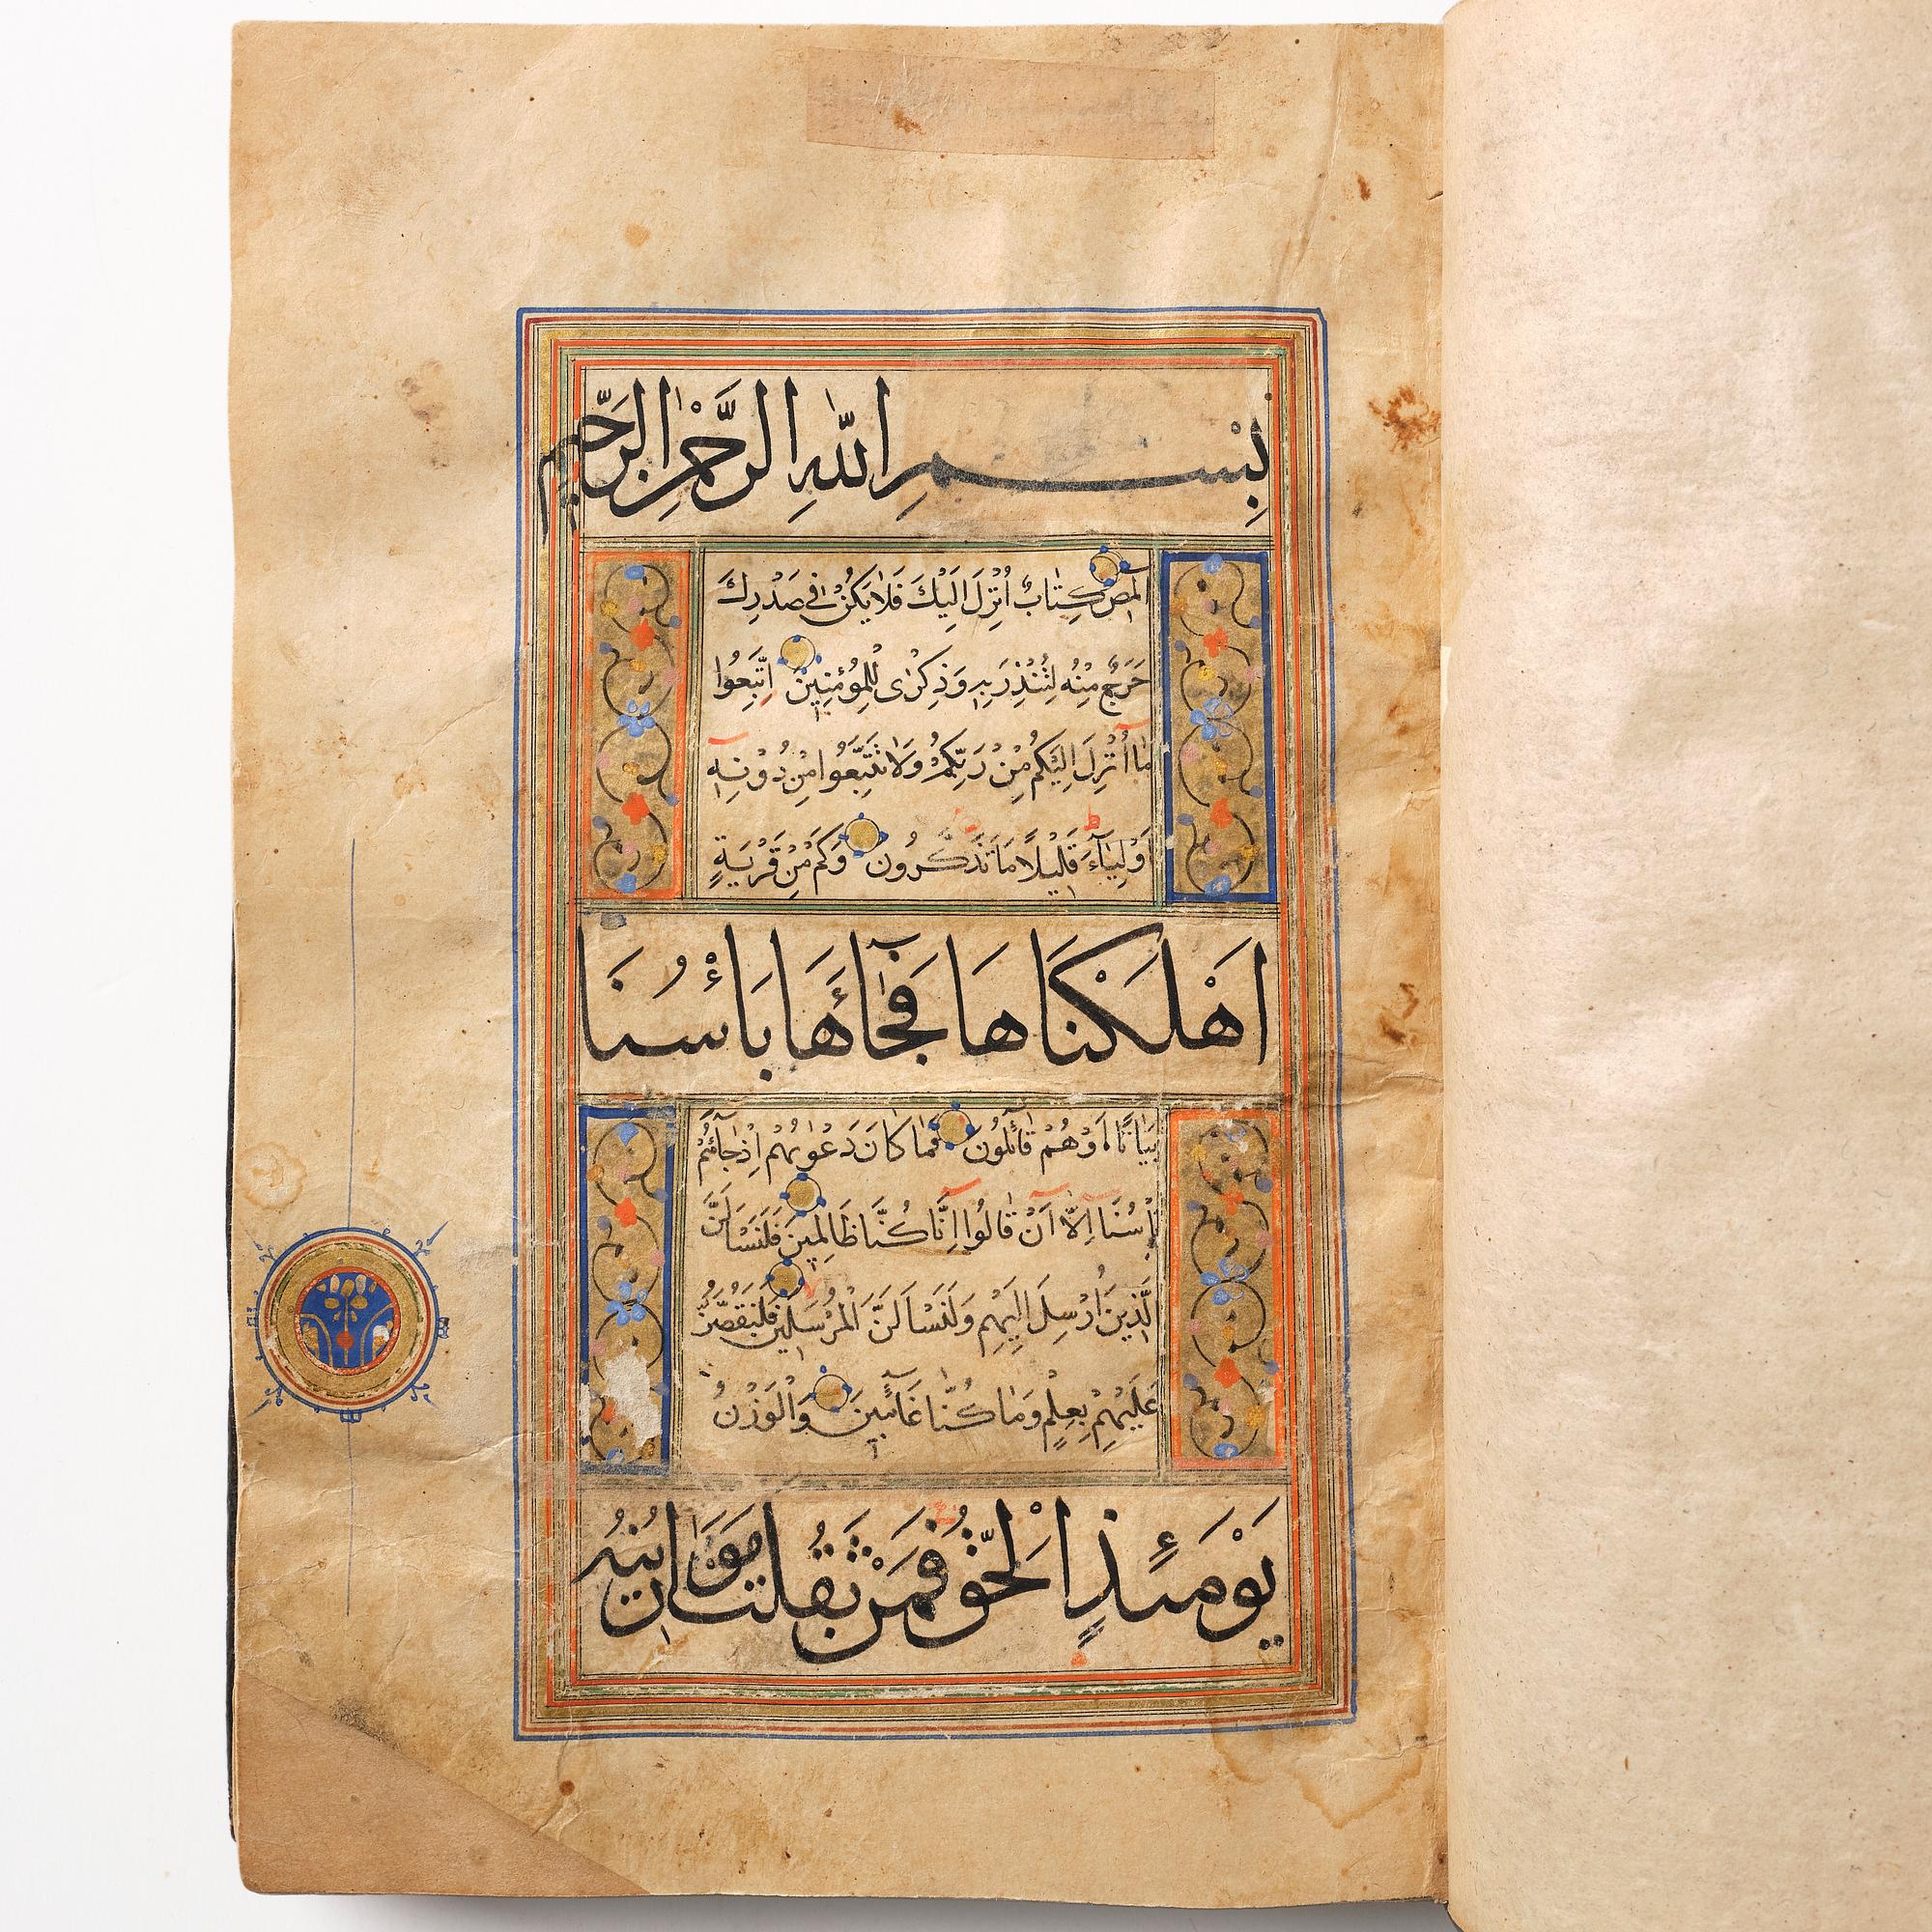 بِسْمِ اللّٰهِ الرَّحْمٰنِ الرَّحِيمِ
الٓمٓصٓ كِتَابٌ اُنْزِلَ اِلَيْكَ فَلَا يَكُنْ فِي صَدْرِكَ
حَرَجٌ مِنْهُ لِتُنْذِرَ بِهِ وَذِكْرٰى لِلْمُؤْمِنِينَ اِتَّبِعُوا
مَا اُنْزِلَ اِلَيْكُمْ مِنْ رَبِّكُمْ وَلَا تَتَّبِعُوا مِنْ دُونِهِ
اَوْلِيَآءَ قَلِيلًا مَا تَذَكَّرُونَ وَكَمْ مِنْ قَرْيَةٍ
اَهْلَكْنَاهَا فَجَآءَهَا بَاْسُنَا
بَيَاتًا اَوْ هُمْ قَآئِلُونَ فَمَا كَانَ دَعْوٰيهُمْ اِذْ جَآءَهُمْ
بَاْسُنَا اِلَّا اَنْ قَالُوا اِنَّا كُنَّا ظَالِمِينَ فَلَنَسْـَٔلَنَّ
الَّذِينَ اُرْسِلَ اِلَيْهِمْ وَلَنَسْاَلَنَّ الْمُرْسَلِينَ فَلَنَقُصَّنَّ
عَلَيْهِمْ بِعِلْمٍ وَمَا كُنَّا غَآئِبِينَ وَالْوَزْنُ
يَوْمَئِذٍ الْحَقُّ فَمَنْ ثَقُلَتْ مَوَازِينُهُ